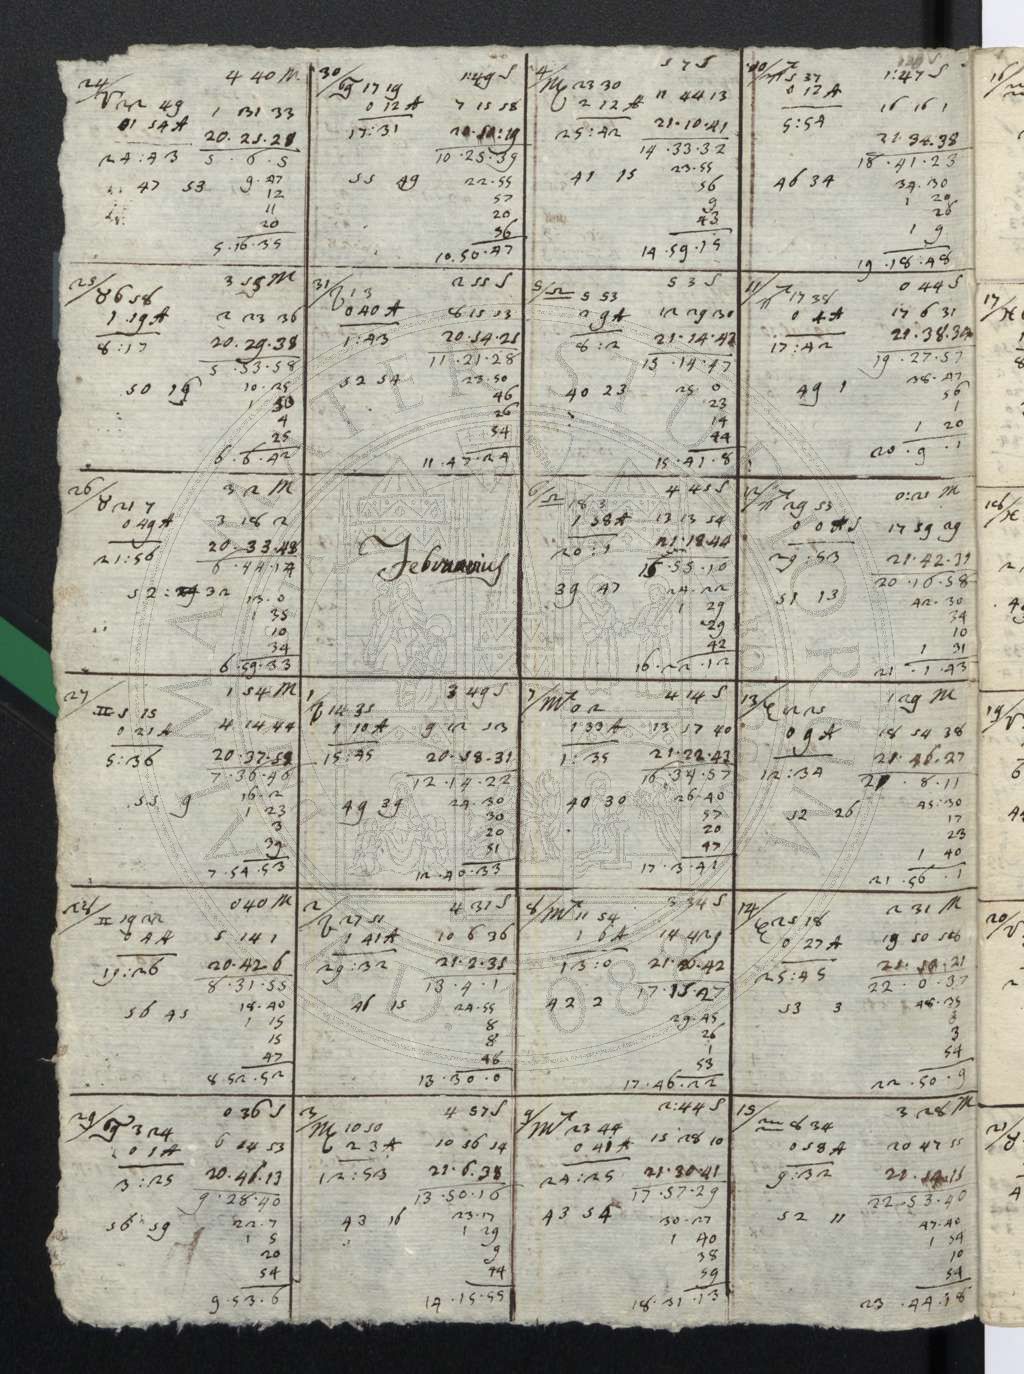 24/ 4 40 M
♈ 22 49 1 31 33
01 54 A 20.25.28
24:43 5.6.5
47 53 9.47
12
11
20
5.16.35
25/ 3 55 M
♉ 6 58
1 19 A 2 23 36
8:17 20.29.38
5.53.58
50 19 10.25
1 50
4
25
6.6.42
26/ 3 2 M
♉ 21 7
0 49 A 3 18 2
21:56 20.33.48
6.44.14
52:32 13.0
35
10
34
6.59.33
27/ 1 54 M
♊ 5 15
0 21 A 4 14 44
5:36 20.37.59
7.36.46
55 9 16.2
1 23
3
39
7.54.53
28/ 0 40 M
♊ 19 22
0 4 A 5 14 1
19:26 20.42 6
8.31.55
56 45 18.40
1 15
15
47
8.52.52
29/ 0 36 S
♋ 3 24
0 1 A 6 14 53
3:25 20.46.13
9.28.40
56 59 22.7
1 5
20
54
9.53.6
30/ 1:49 S
17 19
0 12 A 7 15 58
17:31 20.50:19
10.25.39
55 49 22.55
57
20
56
10.50.47
31/ 2 55 S
1 3
0 40 A 8 15 53
1:43 20 54.25
11.21.28
52 54 23.50
46
26
54
11.47.24
Februarius
1 3 49 S
14 35
1 10 A 9 12 53
15:45 20.58.31
12.14.22
49 39 24.30
30
20
51
12.40.33
2 4 31 S
27 51
1 41 A 10 6 36
29:32 21.2.35
13.4.1
46 15 24.55
8
8
48
13.30.0
3 4 57 S
♍ 10 50
2 3 A 10 56 54
12:53 21.6.38
13.50.16
43 16 23.17
1 29
9
44
14.15.55
4/ 5 7 S
♍ 23 30
2 12 A 11 44 13
25:42 21.10.41
14.33.32
41 15 23.55
56
9
43
14.59.15
5/ 5 3 S
♎ 5 53
2 9 A 12 29 30
8:2 21.14.42
15.14.47
40 23 25 0
23
14
44
15.41.8
6/ 4 45 S
♎ 18 3
1 58 A 13 13 54
20:1 21.18.44
16.55.10
39 47 24.22
1 29
29
42
16.22.12
7/ 4 14 S
♏ 0 2
1 33 A 13 57 40
1:35 21.22.43
16.34.57
40 30 26.40
57
20
47
17.3.41
8/ 3 34 S
♏ 11 54
1 6 A 14 42 9
13:0 21.26.42
17.15.47
42 2 29.45
26
1
53
17.46.22
9/ 2:44 S
♏ 23 44
0 41 A 15 28 10
24:25 21.30.41
17.57.29
43 54 30.27
1 40
38
59
18.31.13
10/ 1:47 S
♐ 5 37
0 17 A 16 16 1
5:54 21.34.38
18.41.23
46 34 34.30
1 20
28
1 9
19.18.48
11/ 0 44 S
♐ 17 38
0 4 A 17 6 31
17:42 21.38.32
19.27.57
49 1 38.47
56
1
1 20
20.9.1
12/ 0:21 M
♐ 29 53
0 0 A S 17 59 29
29:53 21.42.31
20.16.58
51 13 42.30
34
10
1 31
21.1.43
13/ 1 29 M
♑ 12 25
0 9 A 18 54 38
12:34 21.46.27
21.8.11
52 26 45:30
17
23
1 40
21.56.1
14/ 2 31 M
♑ 25 18
0 27 A 19 50 56
25:45 21.50.21
22.0.37
53 3 48.35
8
3
54
22.50.9
15/ 3 28 M
♒ 8 34
0 58 A 20 47 55
9:32 21.54.15
22.53.40
52 11 47.40
1 54
10
54
23.44.18